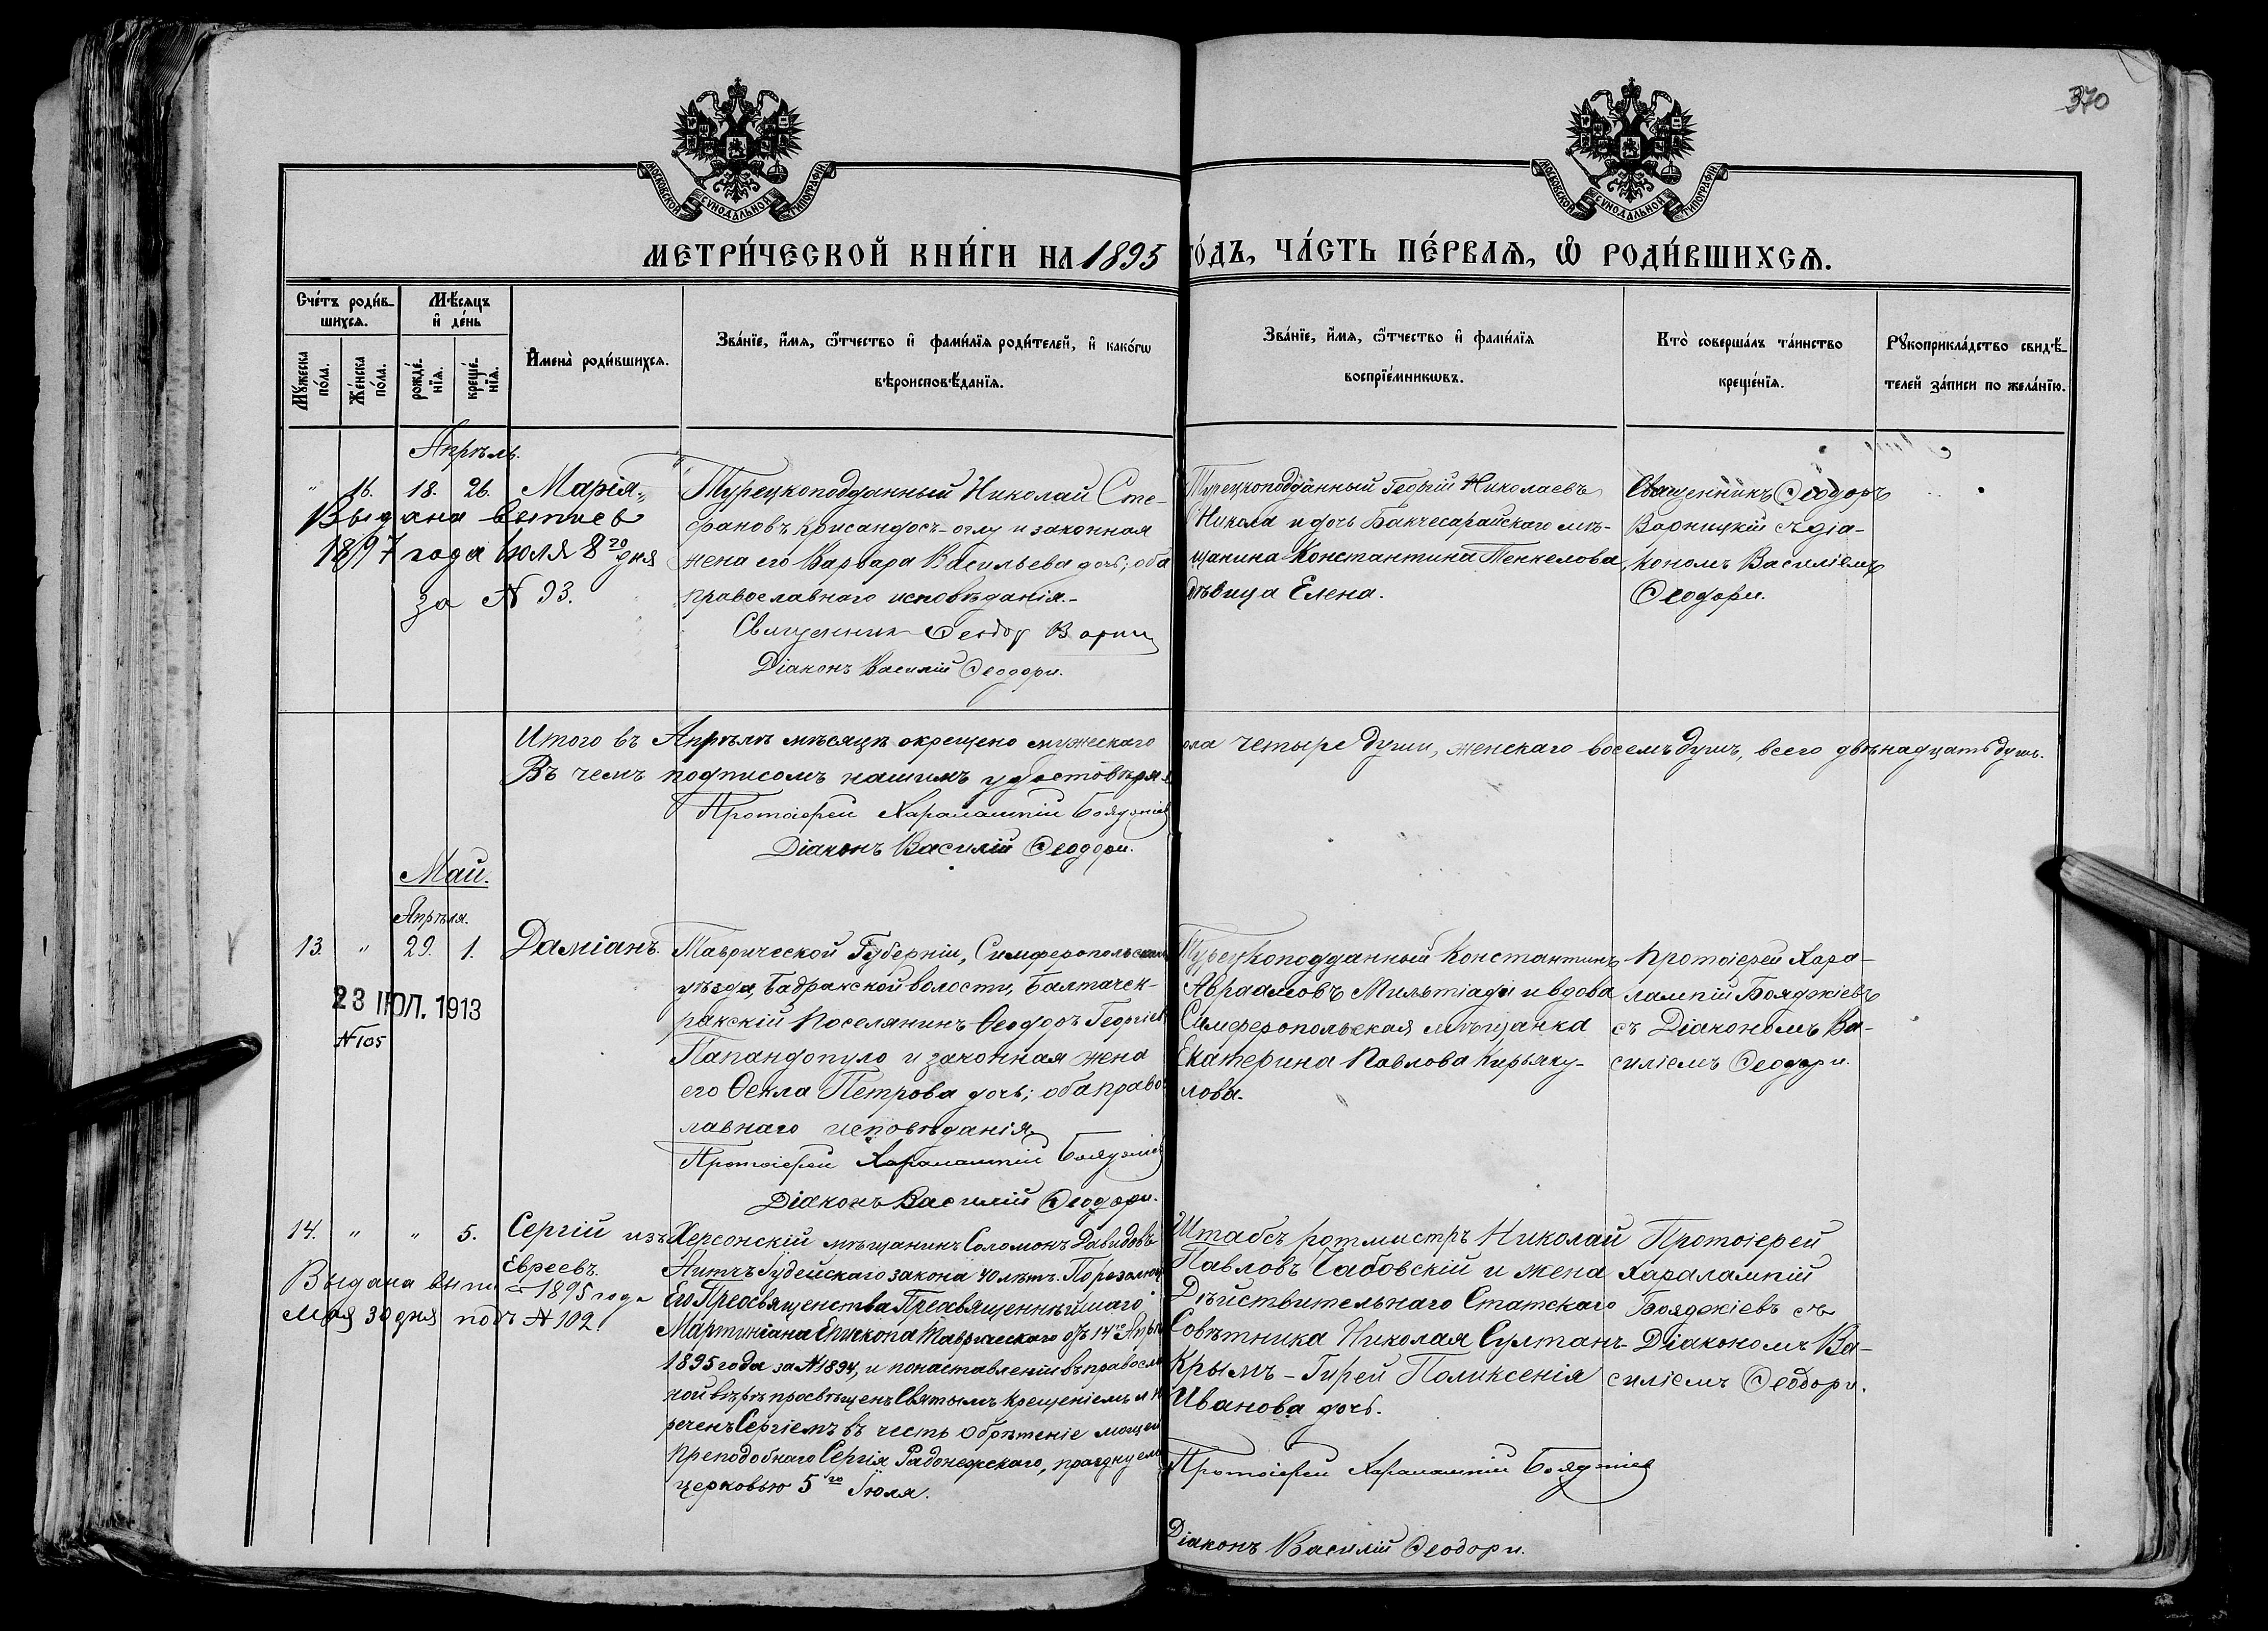 370
МОСКОВСКОЙ СУНОДАЛЬНОЙ ТИПОГРАФІИ
МОСКОВСКОЙ СУНОДАЛЬНОЙ ТИПОГРАФІИ
МЕТРИ́ЧЕСКОЙ КНИ́ГИ НА 1895 ГО́ДЪ, ЧА́СТЬ ПЕ́РВАѦ, Ѡ҆ РОДИ́ВШИХСѦ.
Счетъ роди́в-
шихсѧ.
Мѣсѧцъ
и҆ де́нь
Мꙋжеска
по́ла.
Же́нска
по́ла.
рожде́-
нїѧ.
креще́-
нїѧ.
И҆мена̀ роди́вшихсѧ.
Зва́нїе, и҆́мѧ, ѻ҆́тчество и҆ фами́лїѧ роди́телей, и҆ како́гѡ
вѣроисповѣ́данїѧ.
Зва́нїе, и҆́мѧ, ѻ҆́тчество и҆ фами́лїѧ
воспрїе́мникѡвъ.
Кто̀ соверша́лъ та́инство
креще́нїѧ.
Рꙋкоприкла́дство свидѣ́-
телей за́писи по жела́нїю.
Апрѣль.
" 16. 18. 26. Марія.
Выдана выпись
1897 года Іюля 8го дня
за № 93.
Турецкоподданный Николай Сте-
фановъ Крисандосъ-оглу и законная
жена его Варвара Васильева дочь; оба
православнаго исповѣданія.-
Священник Феодор Варниц
Діаконъ Василій Ѳеодори.
Турецкоподданный Георгій Николаевъ
Никола и дочь Бакчесарайскаго мѣ-
щанина Константина Тенкелова
дѣвица Елена.
Священникъ Ѳеодоръ
Варницкій съ діа-
кономъ Василіемъ
Ѳеодори.
Итого въ Апрѣлѣ мѣсяцѣ окрещено мужескаго пола четыре души, женскаго восемь душъ, всего двѣнадцать душъ.
Въ чемъ подписомъ нашимъ удостовѣря-
Протоіерей Харалампій Бояджіев
Діаконъ Василій Ѳеодори.
Май.
Апрѣля.
13. " 29. 1. Даміанъ.
23 ІЮЛ. 1913
№ 105
Таврической Губерніи, Симферопольскаго
уѣзда, Бадракской волости, Балтачек-
ракскій Поселянинъ Ѳеодоръ Георгіев
Папандопуло и законная жена
его Ѳекла Петрова дочь; оба правос
лавнаго исповѣданія
Протоіерей Харалампій Бояджіев
Діаконъ Василій Ѳеодори.
Турецкоподданный Константинъ
Авраамовъ Мильтіади и вдова
Симферопольская мѣщанка
Екатерина Павлова Кирьяку-
лова.
Протоіерей Хара-
лампій Бояджіевъ
съ Діакономъ Ва-
силіемъ Ѳеодори.
14. " " 5. Сергій изъ
Евреевъ.
Выдана выпись 1895 года
Мая 30 дня подъ № 102.
Херсонскій мѣщанинъ Соломонъ Давидовъ
Іудейскаго закона 40 лѣтъ. По резолюц
Его Преосвященства Преосвященнѣйшаго
Мартиніана Епископа Таврическаго отъ 14го Апрѣ
1895 года за № 1894, и по наставленіи въ правосла
ной вѣрѣ просвѣщенъ Святымъ Крещеніемъ и на
реченъ Сергіемъ въ честь Обрѣтеніе мощей
Преподобнаго Сергія Радонежскаго, праздну емо
церковью 5го Іюля.
Штабсъ ротмистръ Николай
Павловъ Чабовскій и жена
Дѣйствительнаго Статскаго
Совѣтника Николая Султанъ-
Крымъ-Гирей Поликсенія
Иванова дочь.
Протоіерей Харалампій Бояджіев
Діаконъ Василій Ѳеодори.
Протоіерей
Харалампій
Бояджіевъ съ
Діакономъ Ва-
силіемъ Ѳеодори.